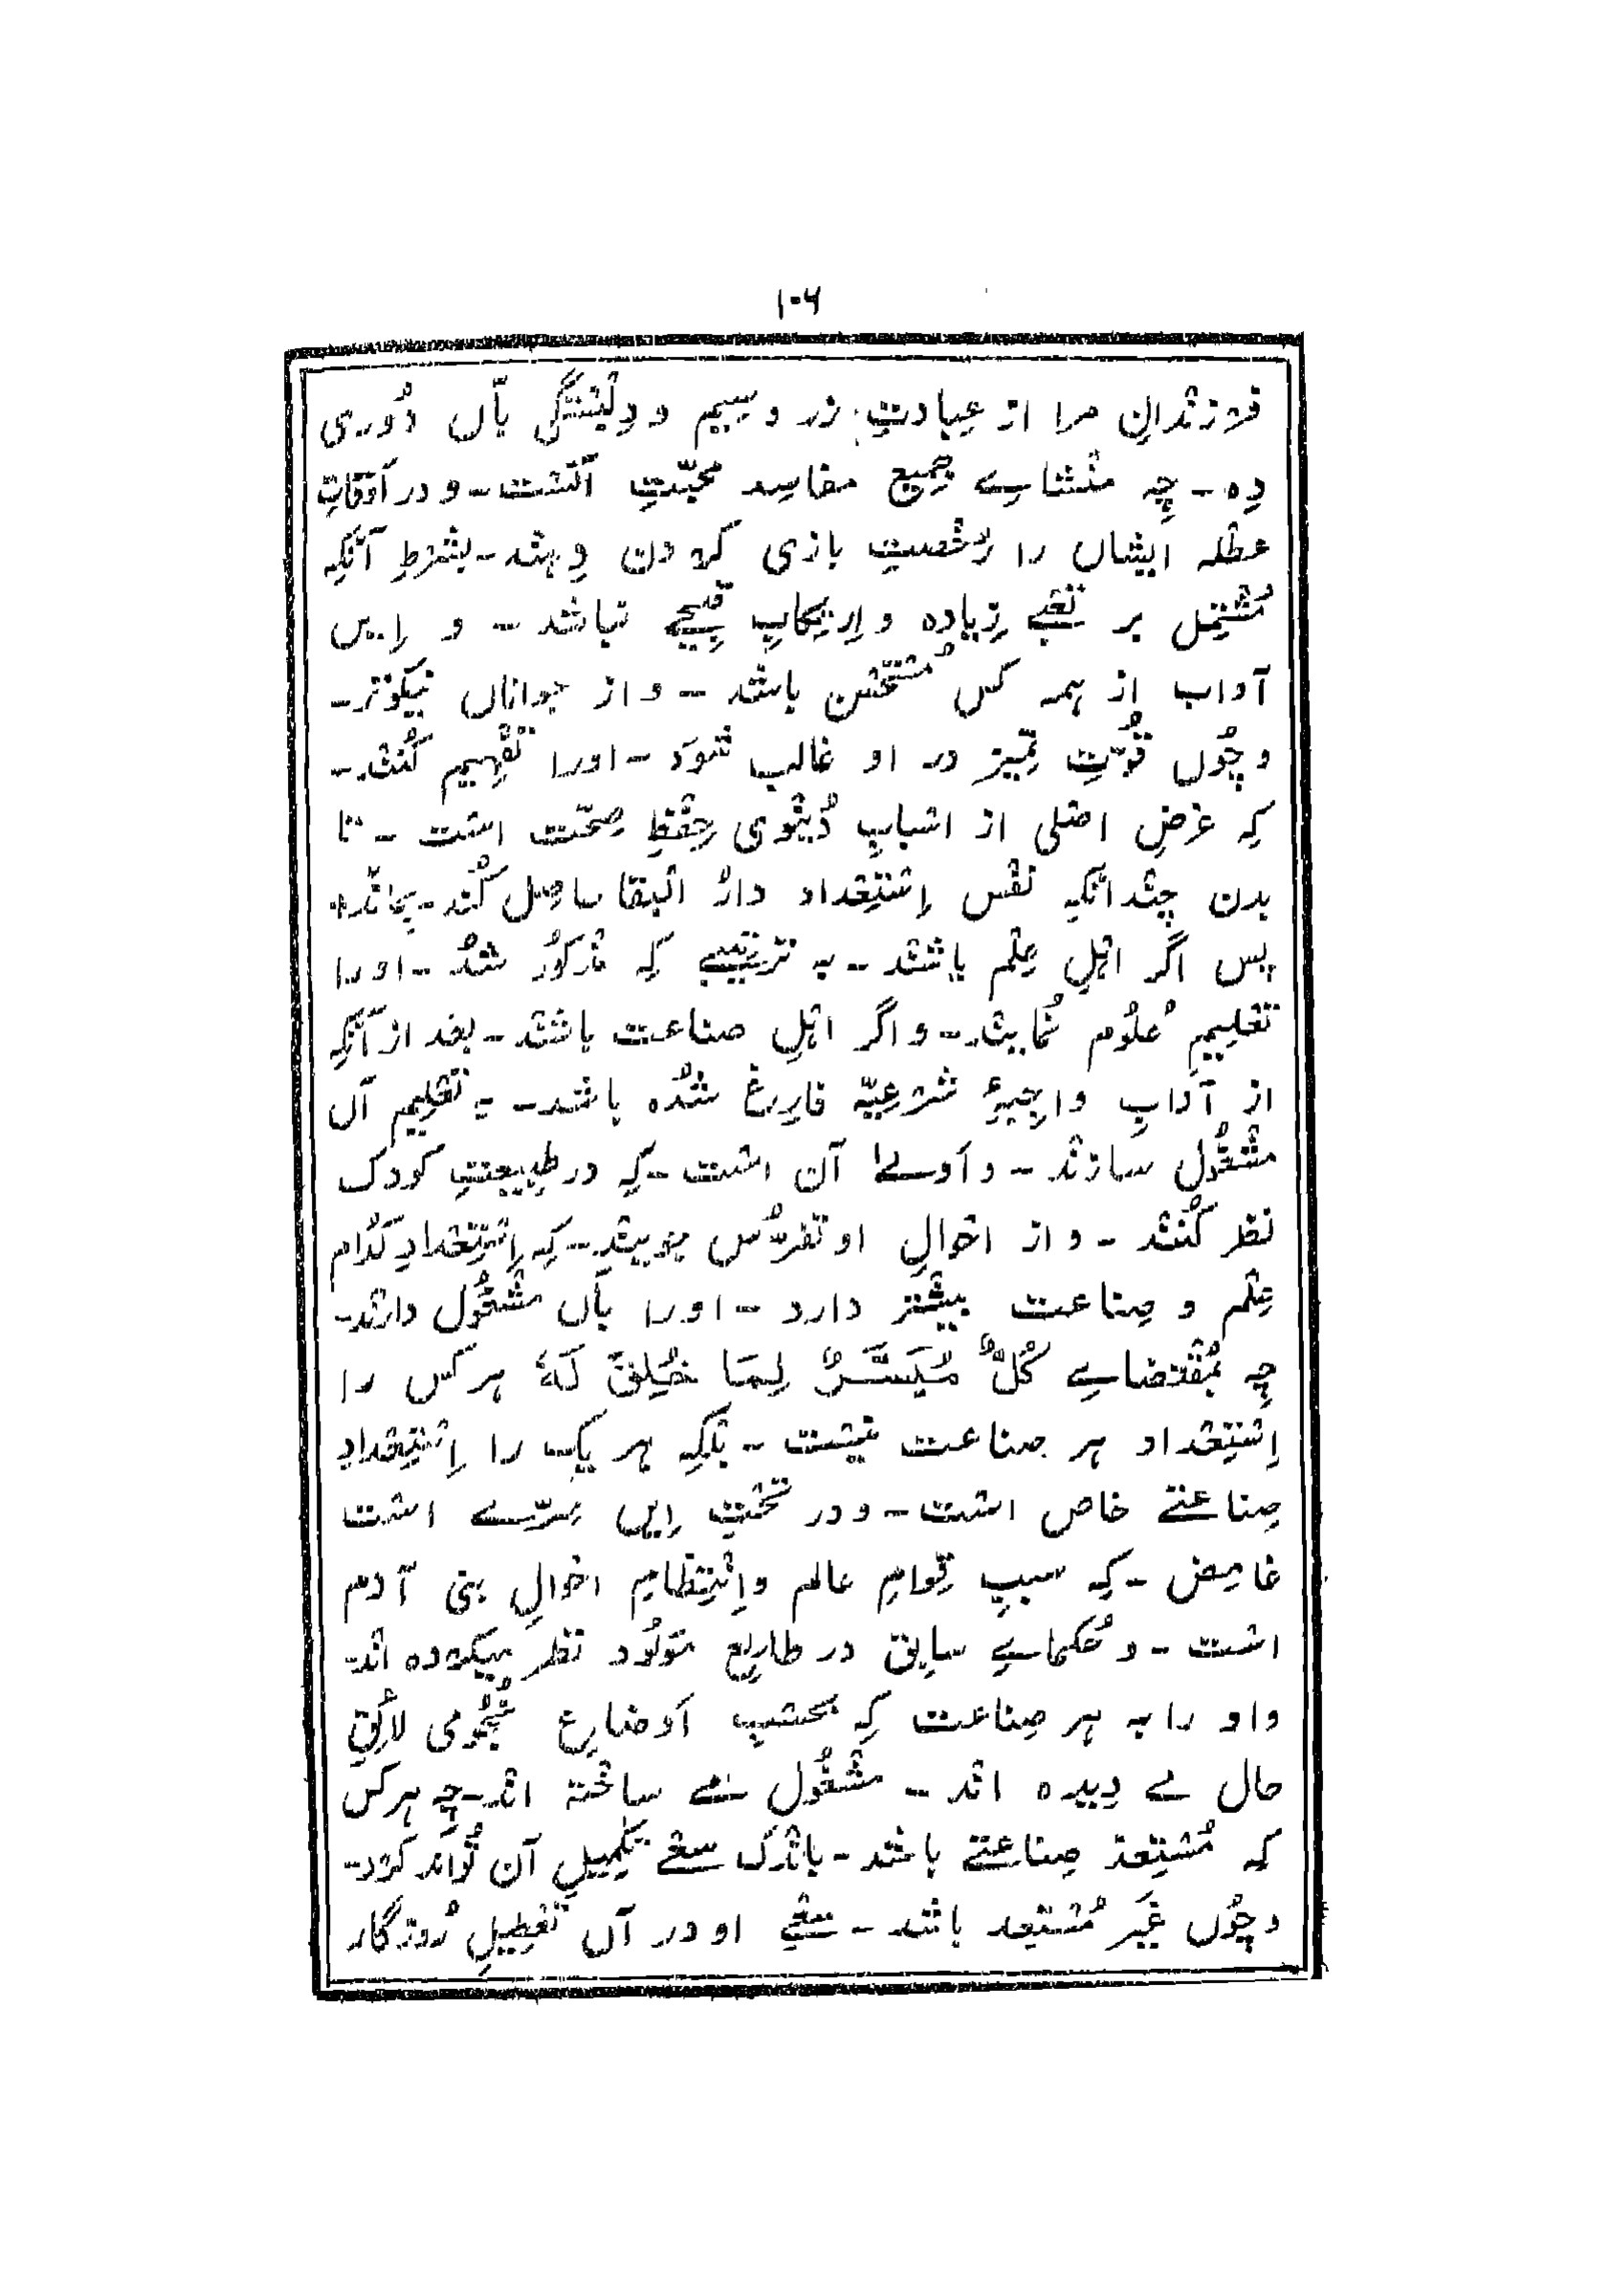 ۱۰۶
فرزندانِ مرا از عبادتِ زر و سیم و دِلبستگی بآں دُوری
دِہ ـ چِہ منشاے جمیع مفاسد محبّتِ آنست ـ و در اَوقاتِ
عطلہ ایشاں را رُخصتِ بازی کردن دِہند ـ بشرطِ آنکہ
مُشتمِل بر تعبے زِیادہ و اِرتِکابِ قبیحے نباشد ـ و اِیں
آداب از ہمہ کس مُستحسن باشد ـ و از جواناں نیکوتر ـ
و چُوں قُوّتِ تمیز در او غالب شَود ـ اورا تفہیم کُنند ـ
کِہ غرضِ اصلی از اسبابِ دُنیوی حِفظِ صِحّت است ـ تا
بدن چندانکہ نفس اِستِعداد دارُ البقا حاصِل کُند ـ بماند
پس اگر اہلِ عِلم باشند ـ بہ ترتیبے کِہ مذکُور شُد ـ اورا
تعلیمِ عُلُوم نُمایند ـ و اگر اہلِ صناعت باشند ـ بعد از آنکہ
از آدابِ واجِبۂِ شرعِیّہ فارِغ شُدہ باشد ـ بہ تعلیم آں
مشغُول سازند ـ و اَولےٰ آن است ـ کِہ در طبِیعتِ کودک
نظر کُنند ـ و از احوالِ او تفرُّس جویند ـ کِہ اِستِعدادِ کُدام
عِلم و صِناعت بیشتر دارد ـ اورا بآں مشغُول دارند ـ
چِہ بمُقتضاے کُلٌّ مُیَسَّرٌ لِمَا خُلِقَ لَهٗ ہر کس را
اِستِعداد ہر صناعت نیست ـ بلکِہ ہر یک را اِستِعدادِ
صِناعتے خاص است ـ و در تحتِ اِیں سِرّے است
غامِض ـ کِہ سببِ قِوامِ عالم و اِنتِظامِ احوالِ بنی آدم
است ـ و حُکماے سابِق در طالِعِ مَولُود نظر میکردہ اند
و او را بہ ہر صِناعت کِہ بحسبِ اَوضاعِ نُجُومی لائقِ
حال مے دِیدہ اند ـ مشغُول مے ساختہ اند ـ چِہ ہر کس
کِہ مُستعِدِّ صِناعتے باشد ـ باندک سعے تکمِیلِ آن تُواند کرد ـ
و چُوں غَیر مُستعِد باشد ـ سعیِ او در آں تعطِیلِ رُوزگار